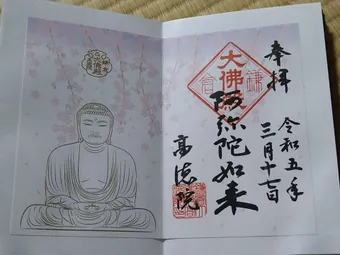 奉拝
令和五年
三月十七日
大佛
鎌倉
阿弥陀如来
高徳院